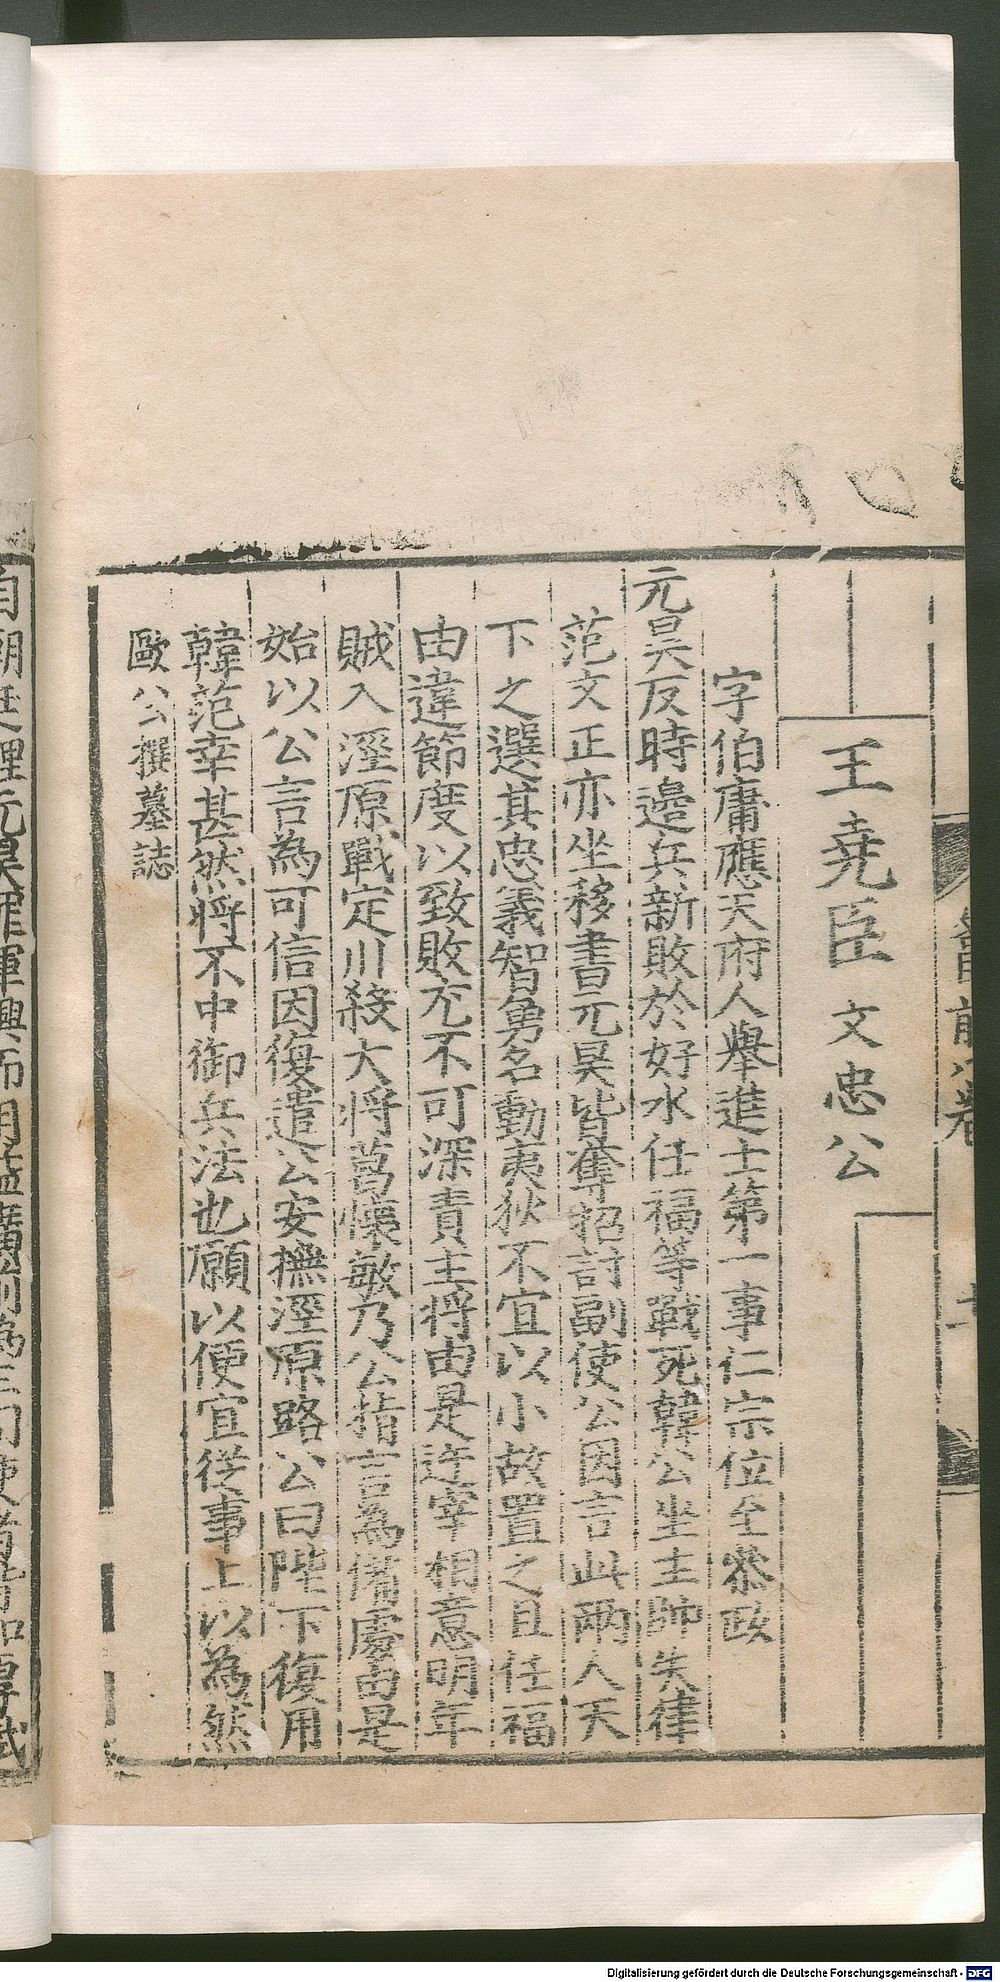 王堯臣 文忠公
字伯庸應天府人舉進士第一事仁宗位至叅政
元昊反時邉兵新敗於好水任福等戰死韓公坐主帥失律
范文正亦坐移書元昊皆奪招討副使公因言此兩人天
下之選其忠義智勇名動夷狄不宜以小故置之且任福
由違節度以致敗尤不可深責主將由是迕宰相意明年
賊入涇原戰定川殺大將葛懷敏乃公指言為備處由是
始以公言為可信因復遣公安撫涇原路公曰陛下復用
韓范幸甚然將不中御兵法也願以便宜從事上以為然
歐公撰墓誌
Digitalisierung gefördert durch die Deutsche Forschungsgemeinschaft - DFG